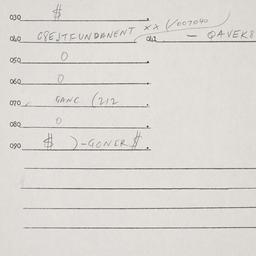 030 $
040 CGESTFUNDANENT xx (/007040 042 - QAVEK8
050 0
060 0
070 GANC (212
080 0
090 $ )-GONER $